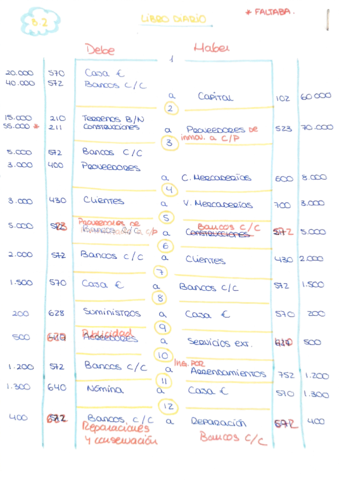 3.2
LIBRO DIARIO
* FALTABA.
Debe Haber
1
20.000 570 Caja €
40.000 572 Bancos C/C
a Capital 102 60.000
2
15.000 210 Terrenos B/N
55.000 * 211 Construcciones a Proveedores de 523 70.000
inmov. a C/P
3
5.000 572 Bancos C/C
3.000 400 Proveedores
a C. Mercaderías 600 8.000
4
3.000 430 Clientes a V. Mercaderías 700 3.000
5
Proveedores de Bancos C/C
5.000 523 a Construcciones 572 5.000
6
2.000 572 Bancos C/C a Clientes 430 2.000
7
1.500 570 Caja € a Bancos C/C 572 1.500
8
200 628 Suministros a Caja € 570 200
9
Publicidad
500 a Servicios ext. 500
10
1.200 572 Bancos C/C a Ing. por
Arrendamientos 752 1.200
11
1.300 640 Nómina a Caja € 570 1.300
12
400 Bancos C/C a Reparación 400
Reparaciones Bancos C/C
y conservación